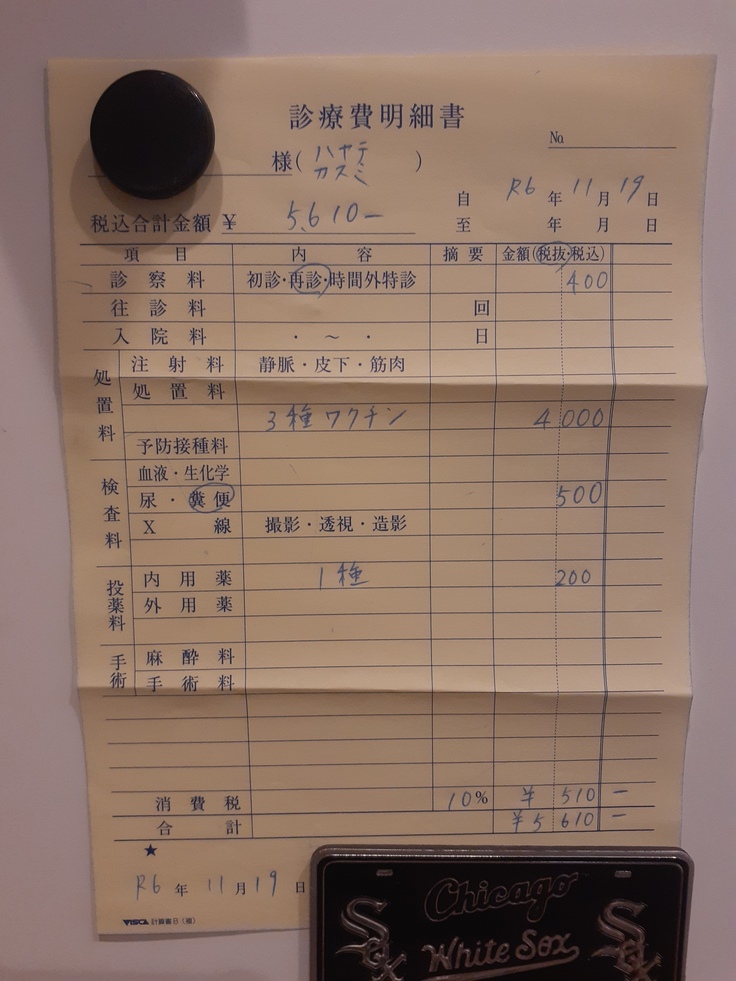 診療費明細書
No.
様(ハヤテ カスミ)
自 R6年 11月 19日
税込合計金額 ¥ 5,610-
至 年 月 日
項目 内容 摘要 金額(税抜・税込)
診察料 初診・再診・時間外特診 400
往診料 回
入院料 ・ ～ ・ 日
処置料 注射料 静脈・皮下・筋肉
処置料
3種ワクチン 4000
予防接種料
検査料 血液・生化学
尿・糞便 500
X線 撮影・透視・造影
投薬料 内用薬 1種 200
外用薬
手術 麻酔料
手術料
消費税 10% ¥ 510 -
合計 ¥5 610 -
★
R6年 11月19日
VISCA 計算書B(複)
Chicago
Sox White Sox Sox